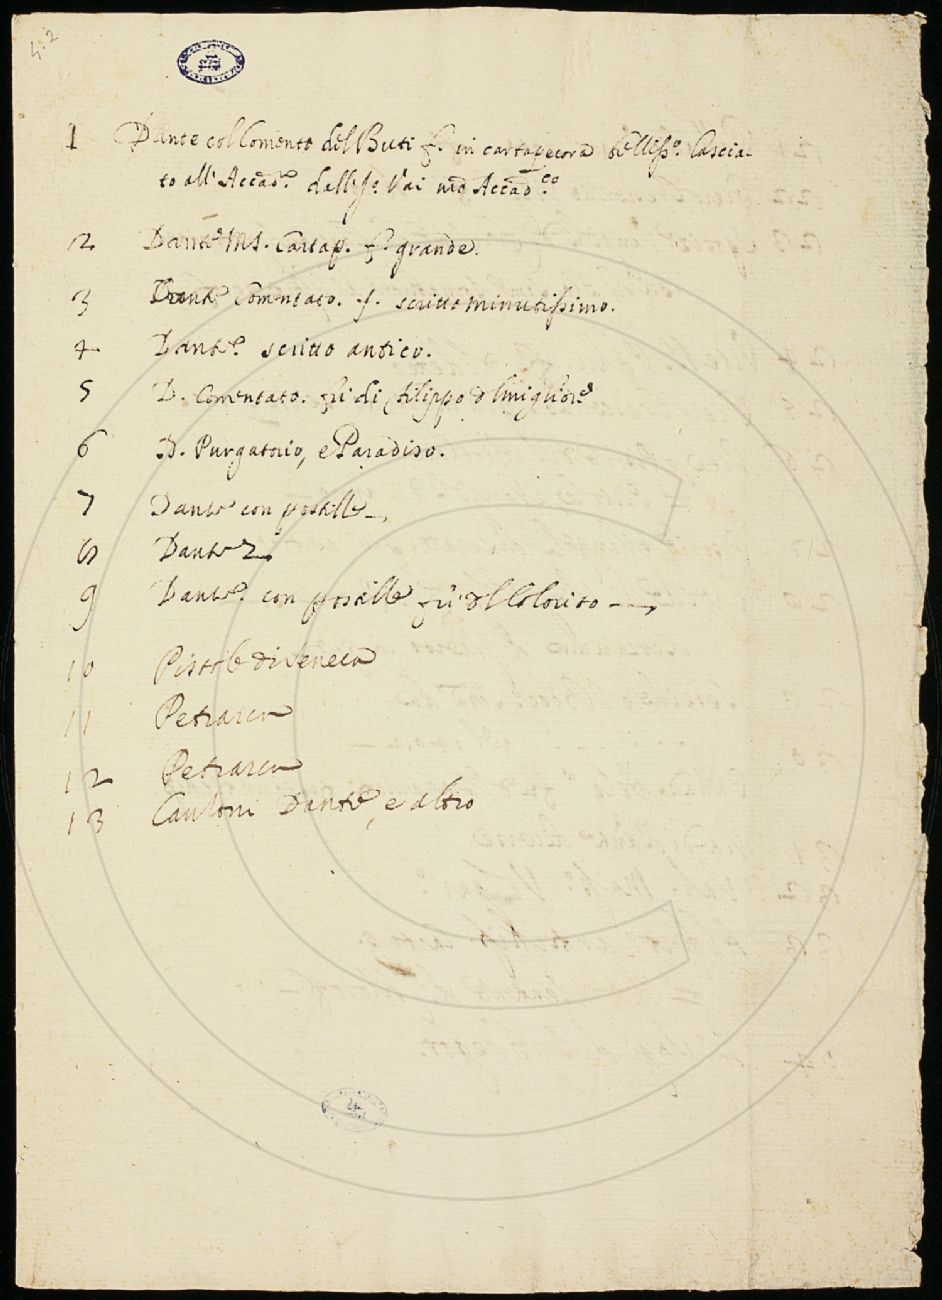 4.2
1 Dante col Comento del Buti f.º in cartapecora bellissº. lascia-
to all' Accadª. dall' Vai nrō Accadco
2 Dante MS. Cartap. fº grande.
3 Dante Comentato. f. scritto minutissimo.
4 Dante. scritto antico.
5 D. Comentato. fù di Filippo
6 D. Purgatorio, e Paradiso.
7 Dante con postille
8 Dante
9 Dante. con postille fù del Colorito
10 Pistole di Seneca
11 Petrarca
12 Petrarca
13 Canzoni Dante, e altro